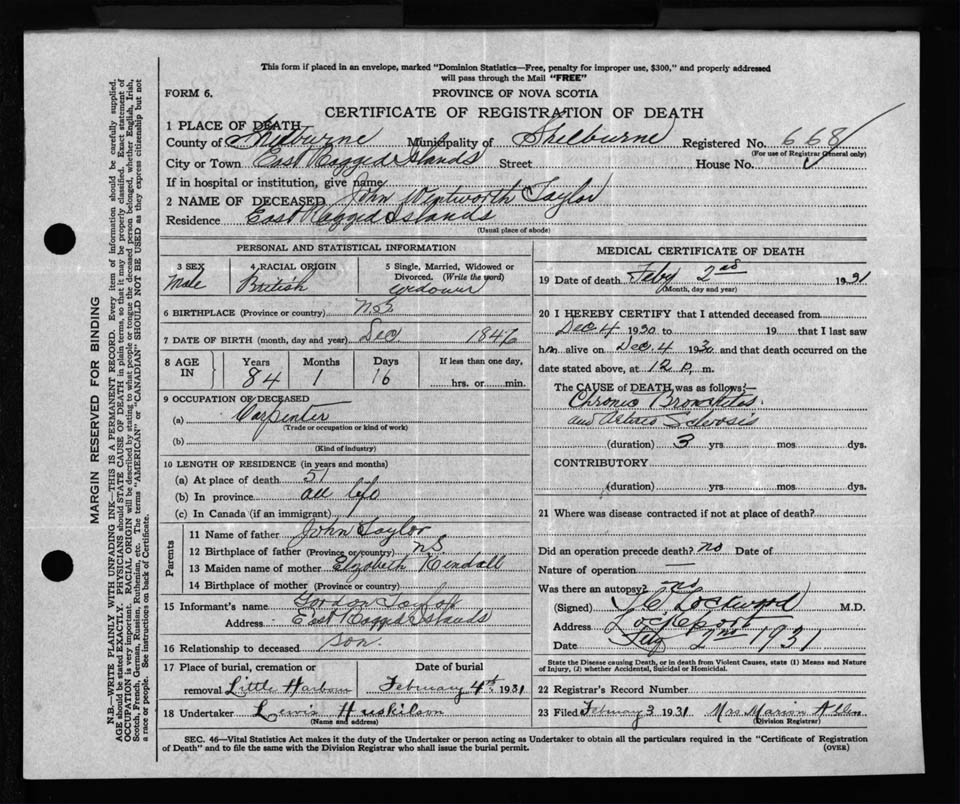 This form if placed in an envelope, marked "Dominion Statistics—Free, penalty for improper use, $300," and properly addressed
will pass through the Mail "FREE"
FORM 6.
PROVINCE OF NOVA SCOTIA
CERTIFICATE OF REGISTRATION OF DEATH
1 PLACE OF DEATH
County of Shelburne Municipality of Shelburne Registered No. 668
(For use of Registrar General only)
City or Town East Ragged Islands Street House No.
If in hospital or institution, give name
2 NAME OF DECEASED John Wentworth Taylor
Residence East Ragged Islands
(Usual place of abode)
PERSONAL AND STATISTICAL INFORMATION
3 SEX
Male
4 RACIAL ORIGIN
British
5 Single, Married, Widowed or
Divorced. (Write the word)
widower
6 BIRTHPLACE (Province or country) N.S.
7 DATE OF BIRTH (month, day and year) Dec 1846
8 AGE IN
Years Months Days If less than one day,
84 1 16 hrs. or min.
9 OCCUPATION OF DECEASED
(a) Carpenter
(Trade or occupation or kind of work)
(b)
(Kind of industry)
10 LENGTH OF RESIDENCE (in years and months)
(a) At place of death 51
(b) In province all life
(c) In Canada (if an immigrant)
Parents
11 Name of father John Taylor
12 Birthplace of father (Province or country) NS
13 Maiden name of mother Elizabeth Kendall
14 Birthplace of mother (Province or country)
15 Informant's name Taylor
Address East Ragged Islands
16 Relationship to deceased son
17 Place of burial, cremation or Date of burial
removal Little Harbour February 4th 1931
18 Undertaker Lewis Huskilson
(Name and address)
MEDICAL CERTIFICATE OF DEATH
19 Date of death Feby 2nd 1931
(Month, day and year)
20 I HEREBY CERTIFY that I attended deceased from
Dec 4 1930 to 19 that I last saw
him alive on Dec. 4 1930 and that death occurred on the
date stated above, at 12 p. m.
The CAUSE of DEATH was as follows:—
Chronic Bronchitis
and Arterio Sclerosis
(duration) 3 yrs. mos. dys.
CONTRIBUTORY
(duration) yrs. mos. dys.
21 Where was disease contracted if not at place of death?
Did an operation precede death? no Date of
Nature of operation —
Was there an autopsy? no
(Signed) Lockwood M.D.
Address Lockeport
Date 2nd 1931
State the Disease causing Death, or in death from Violent Causes, state (1) Means and Nature
of Injury, (2) whether Accidental, Suicidal or Homicidal.
22 Registrar's Record Number
23 Filed February 3 1931 Mrs Marion
(Division Registrar)
SEC. 46—Vital Statistics Act makes it the duty of the Undertaker or person acting as Undertaker to obtain all the particulars required in the "Certificate of Registration
of Death" and to file the same with the Division Registrar who shall issue the burial permit.
(OVER)
MARGIN RESERVED FOR BINDING
N.B.—WRITE PLAINLY WITH UNFADING INK—THIS IS A PERMANENT RECORD. Every item of information should be carefully supplied.
AGE should be stated EXACTLY. PHYSICIANS should STATE CAUSE OF DEATH in plain terms, so that it may be properly classified. Exact statement of
OCCUPATION is very important. RACIAL ORIGIN will be described by stating to what people or tongue the deceased person belonged, whether English, Irish,
Scotch, French, German, Russian, Ruthenian, etc. The terms "AMERICAN" or "CANADIAN" SHOULD NOT BE USED as they express citizenship but not
a race or people. See instructions on back of Certificate.